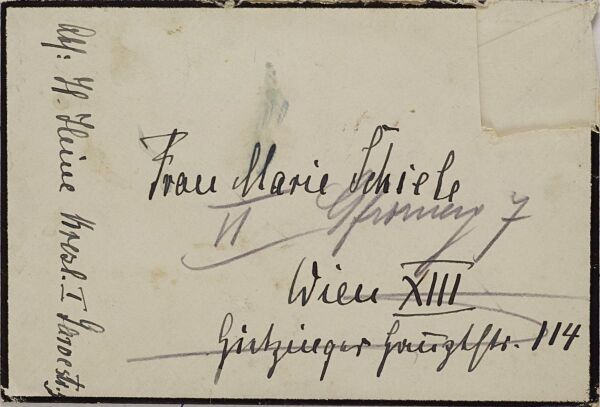 Frau Marie Schiele
II 7
Wien XIII
Hietzinger Hauptstr. 114
Abs: H. Heine Bresl. I